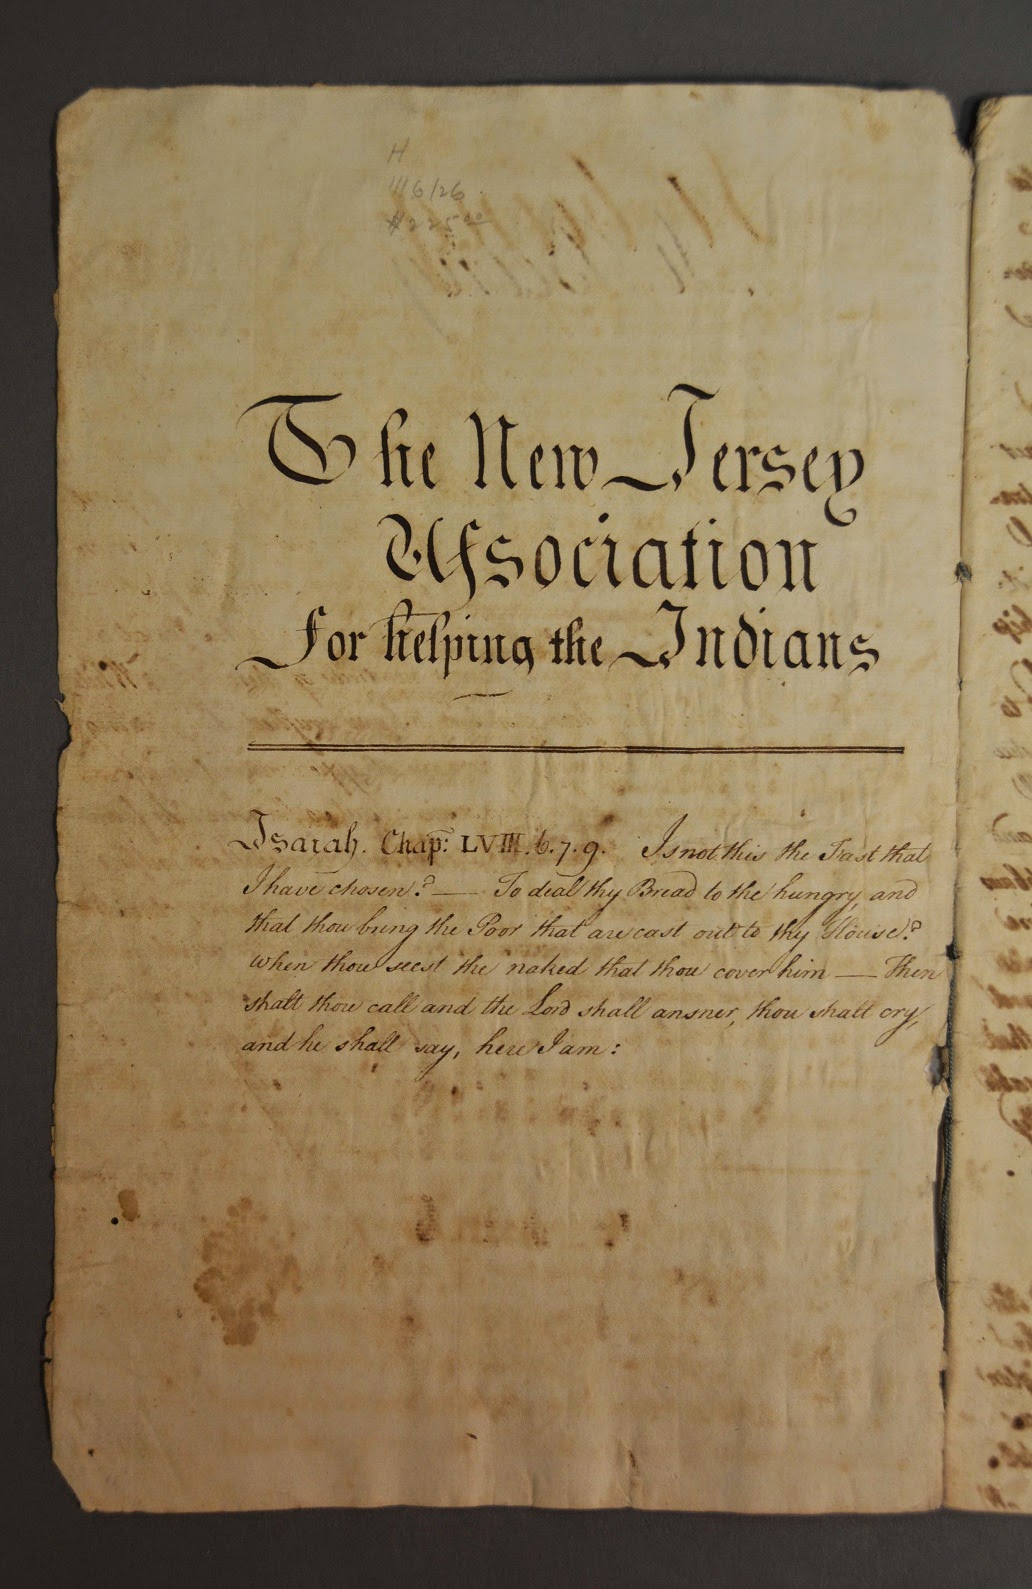 H
1116/26
$225.00
The New Jersey
Association
For helping the Indians
Isaiah. Chap: LVIII. 6. 7. 9. Is not this the Fast that
I have chosen? — To deal thy Bread to the hungry, and
that thou bring the Poor that are cast out to thy House?
when thou seest the naked that thou cover him — Then
shalt thou call and the Lord shall answer, thou shalt cry,
and he shall say, here I am: